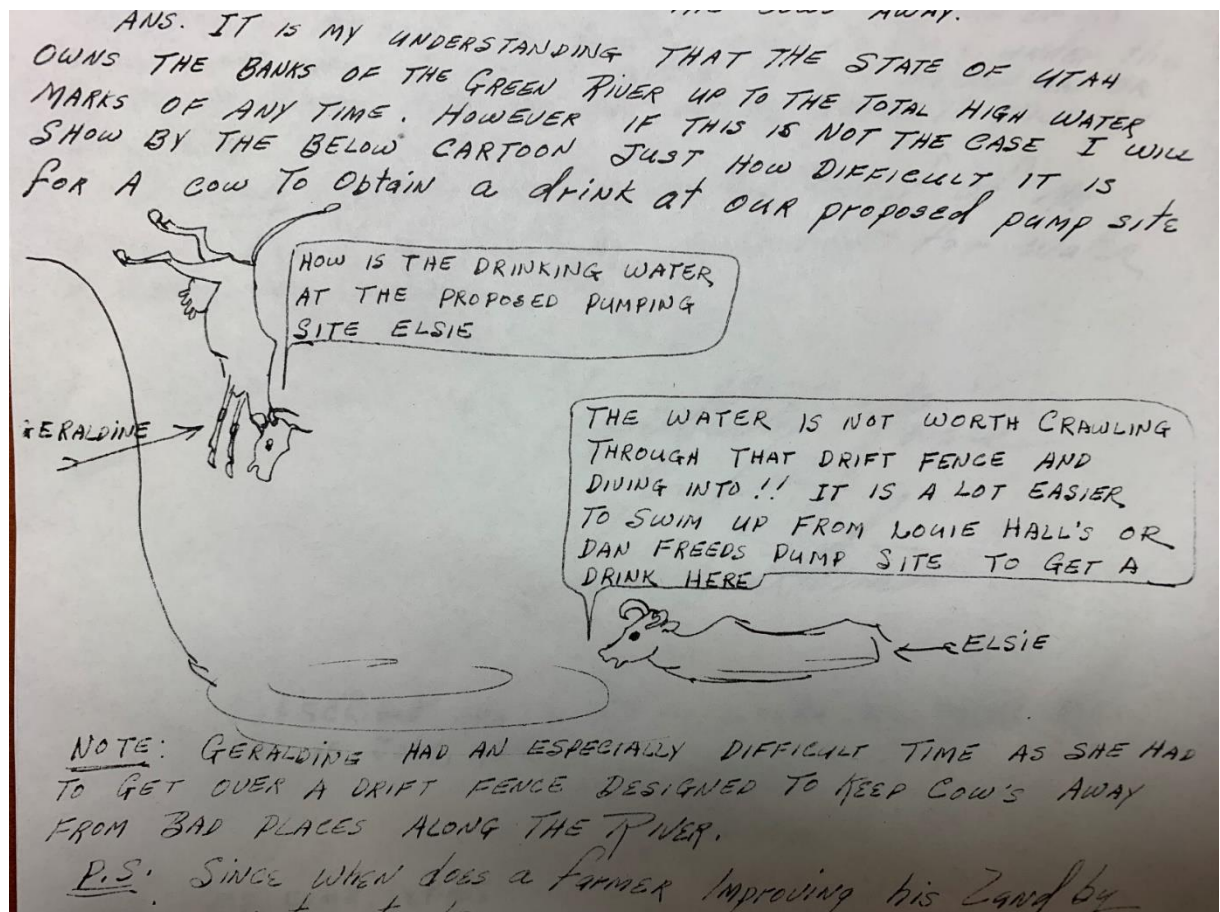 THE COWS AWAY.
ANS. IT IS MY UNDERSTANDING THAT THE STATE OF UTAH
OWNS THE BANKS OF THE GREEN RIVER UP TO THE TOTAL HIGH WATER
MARKS OF ANY TIME. HOWEVER IF THIS IS NOT THE CASE I WILL
SHOW BY THE BELOW CARTOON JUST HOW DIFFICULT IT IS
FOR A COW TO Obtain a drink at our proposed pump site
HOW IS THE DRINKING WATER
AT THE PROPOSED PUMPING
SITE ELSIE
GERALDINE
THE WATER IS NOT WORTH CRAWLING
THROUGH THAT DRIFT FENCE AND
DIVING INTO!! IT IS A LOT EASIER
TO SWIM UP FROM LOUIE HALL'S OR
DAN FREEDS PUMP SITE TO GET A
DRINK HERE
ELSIE
NOTE: GERALDINE HAD AN ESPECIALLY DIFFICULT TIME AS SHE HAD
TO GET OVER A DRIFT FENCE DESIGNED TO KEEP COW'S AWAY
FROM BAD PLACES ALONG THE RIVER.
P.S. Since when does a farmer Improving his Land by